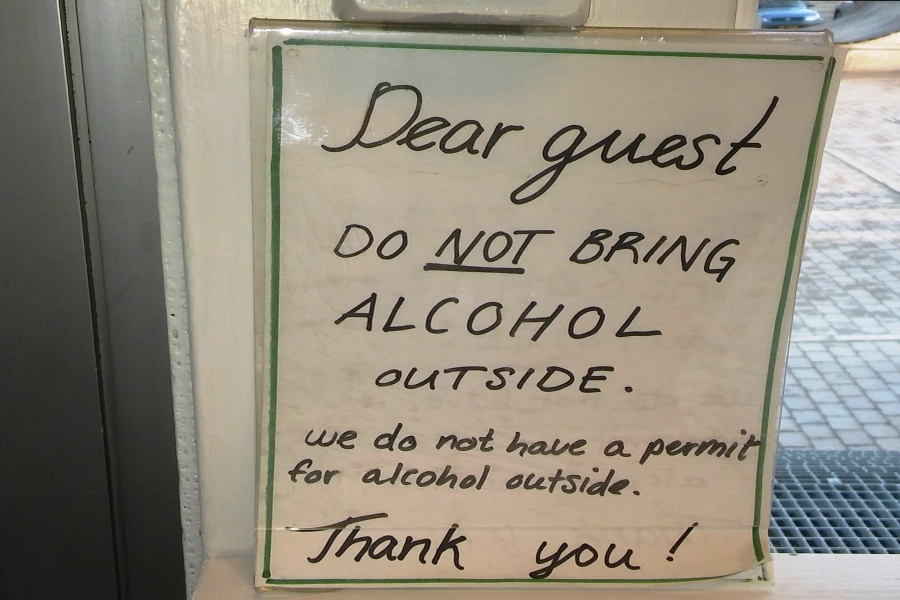 Dear guest
DO NOT BRING
ALCOHOL
OUTSIDE.
we do not have a permit
for alcohol outside.
Thank you!